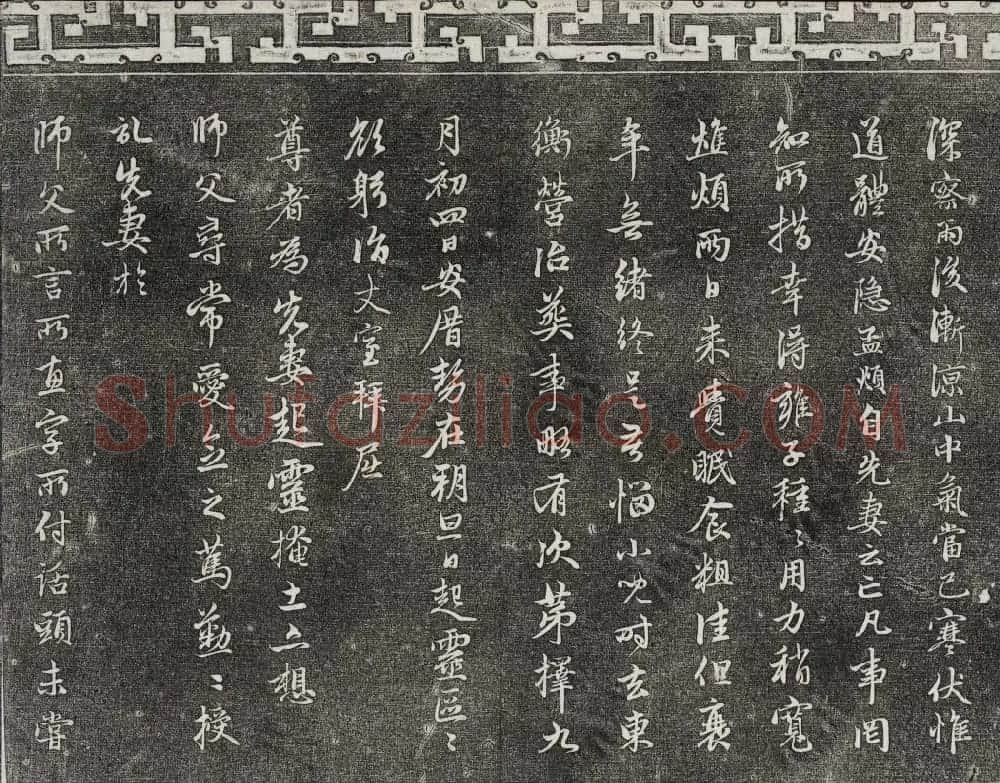 深察雨後漸凉山中氣當已寒伏惟
道體安隐孟頫自先妻云亡凡事罔
知所措幸得雍子種〻用力稍寬
焦煩兩日来覺眠食粗佳但衰
年無緒終是苦惱小兒時去東
衡營治葬事略有次第擇九
月初四日安厝勢在朔旦日起靈區〻
欲躬詣丈室拜屈
尊者為先妻起靈掩土亦想
師父尋常愛念之篤勤〻授
記先妻於
師父所言所惠字所付話頭未嘗
Shufaziliao.COM